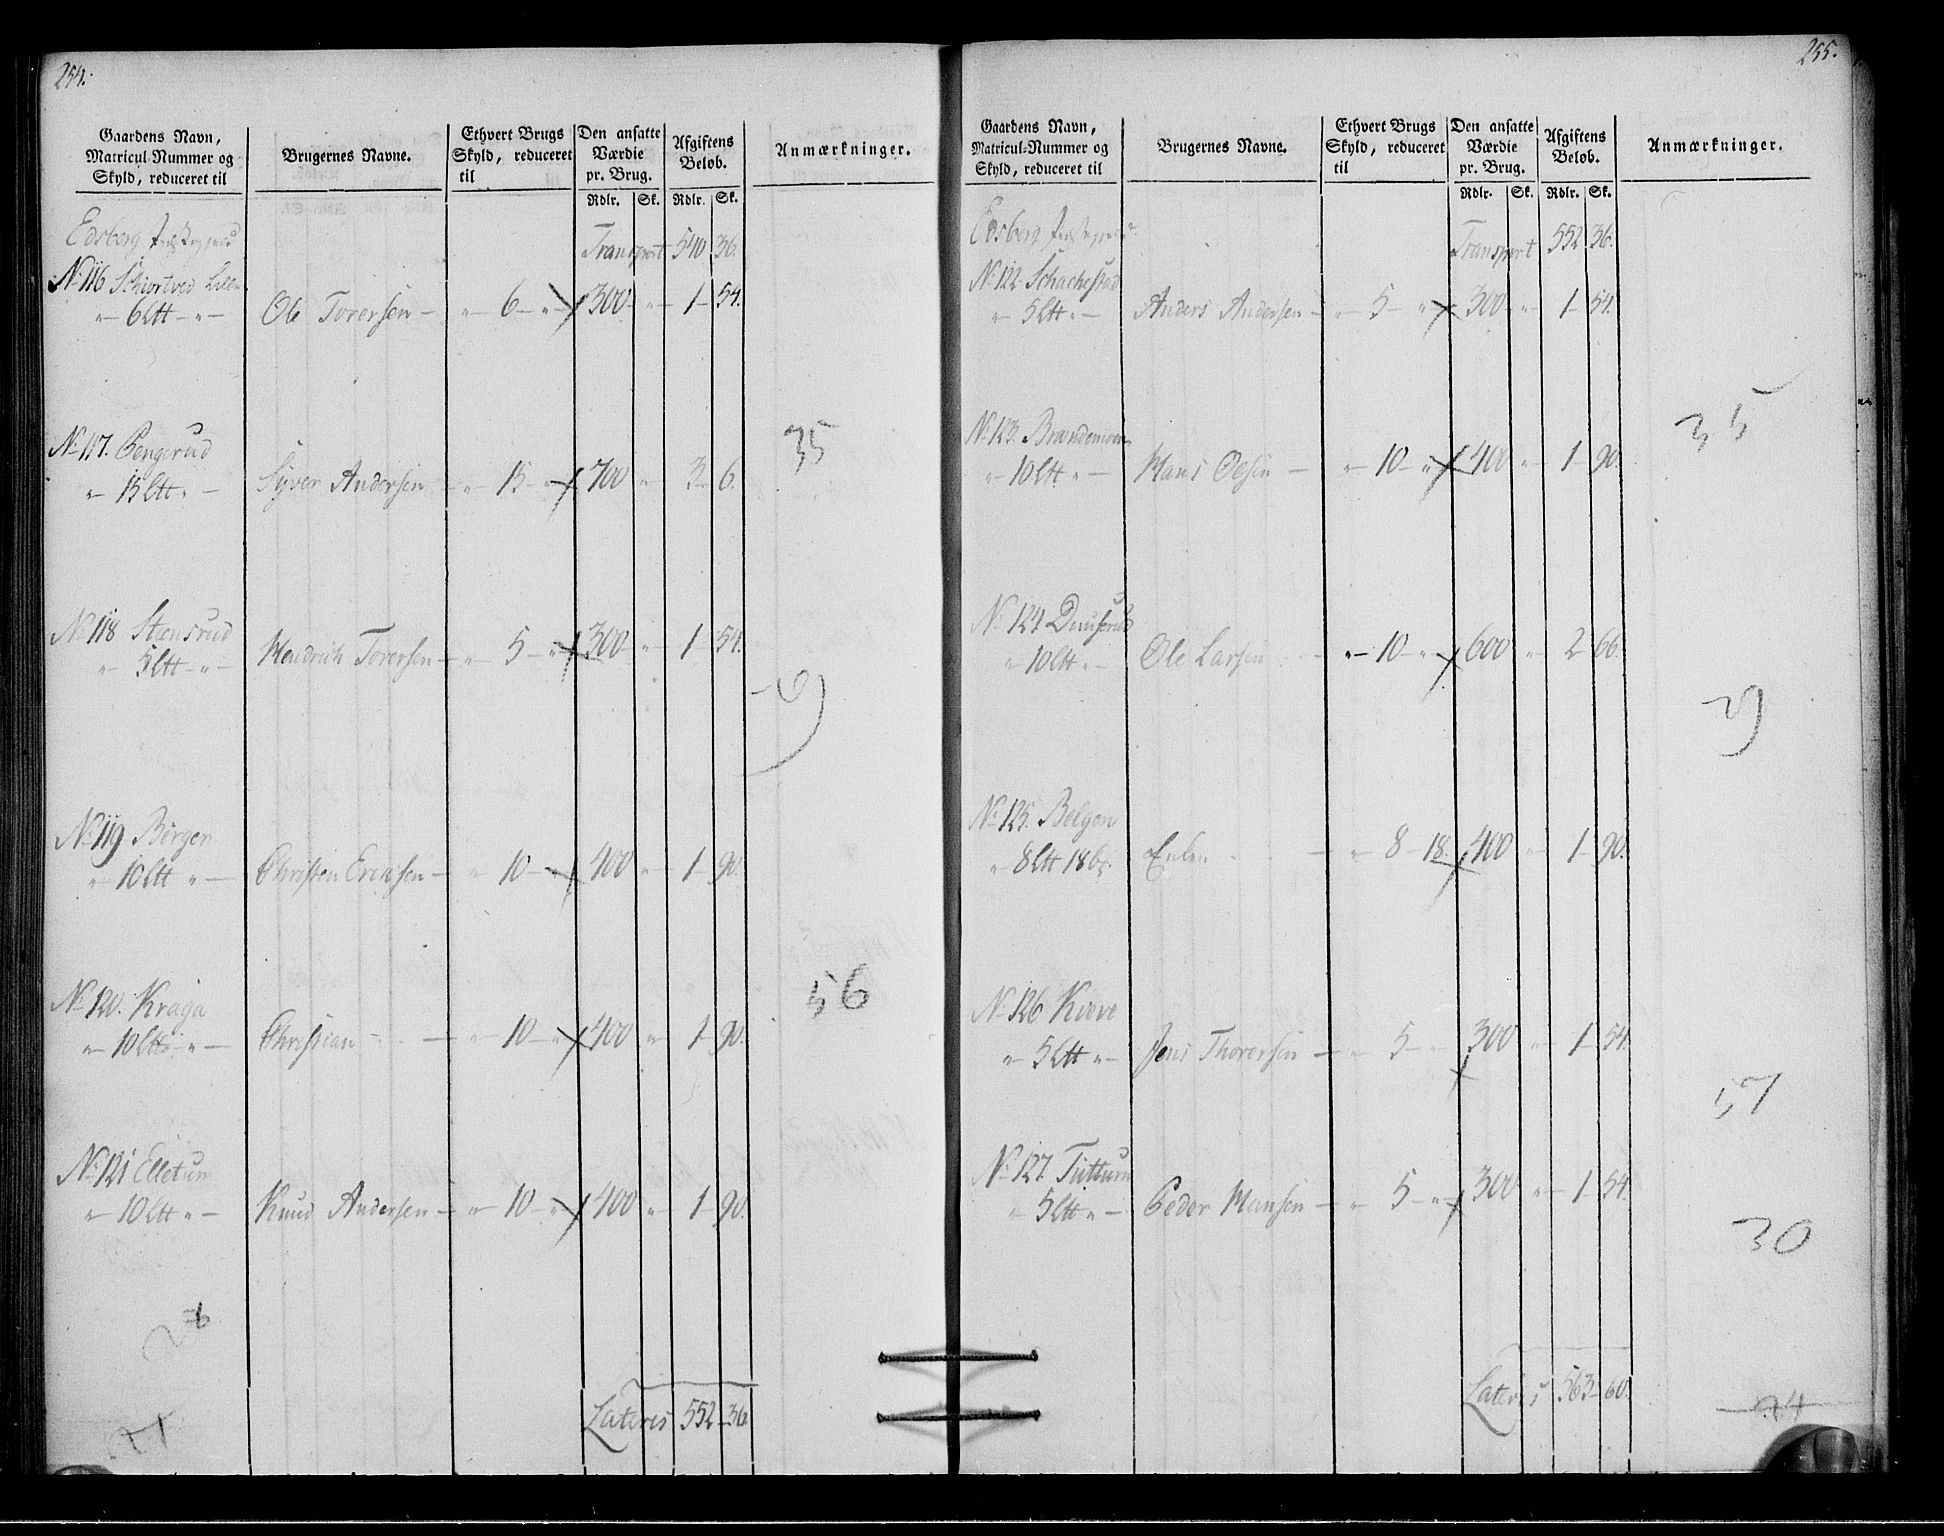 254.
Gaardens Navn, Matricul-Nummer og Skyld, reduceret til
Brugernes Navne.
Ethvert Brugs Skyld, reduceret til
Den ansatte Værdie pr. Brug.
Afgiftens Beløb.
Anmærkninger.
Rdlr. Sk. Rdlr. Sk.
Edsberg Præstegjeld Transport 540 36.
No 116 Schiortved Lille
" 6 Ltt - " - Ole Toversen - " - 6 - " - 300 - " - 1 - 54.
No 117. Pengerud
" 15 Ltt " - Syver Andersen - " - 15 - " 700 " 3 - 6.
35
No 118 Steensrud
" 5 Ltt - " - Hendrich Toversen - " - 5 - " - 300 - " 1 - 54.
29
No 119 Börger
" 10 Ltt " - Christen Erichsen - " 10 - " 400 - " 1 - 90.
No 120. Kraga
" 10 Ltt " - Christian - - " 10 - " 400 " 1 - 90.
56
No 121 Elletun
" 10 Ltt " - Knud Andersen - " 10 - " 400 " 1 - 90.
Lateris 552 - 36
255.
Gaardens Navn, Matricul-Nummer og Skyld, reduceret til
Brugernes Navne.
Ethvert Brugs Skyld, reduceret til
Den ansatte Værdie pr. Brug.
Afgiftens Beløb.
Anmærkninger.
Rdlr. Sk. Rdlr. Sk.
Edsberg Præstegjeld Transport 552 36.
No 122 Schachestad
" 5 Ltt " - Anders Andersen - " 5 - " 300 - " 1 - 54.
No 123. Brandemoen
" 10 Ltt " - Hans Oesen - " 10 - " 400 " 1 - 90.
35
No 124 Duuserud
" 10 Ltt " - Ole Larsen " - 10 - " 600 - " 2 - 66.
29
No 125. Belgen
" 8 Ltt 18 b. Enken - " 8 - 18. 400 " 1 - 90.
No 126 Kvove
" 5 Ltt " - Jens Thoresen - " 5 - " 300 " 1 - 54.
57
No 127. Tuttum
" 5 Ltt " - Peder Hansen - " 5 - " 300 " 1 - 54.
30
Lateris 563 - 60.